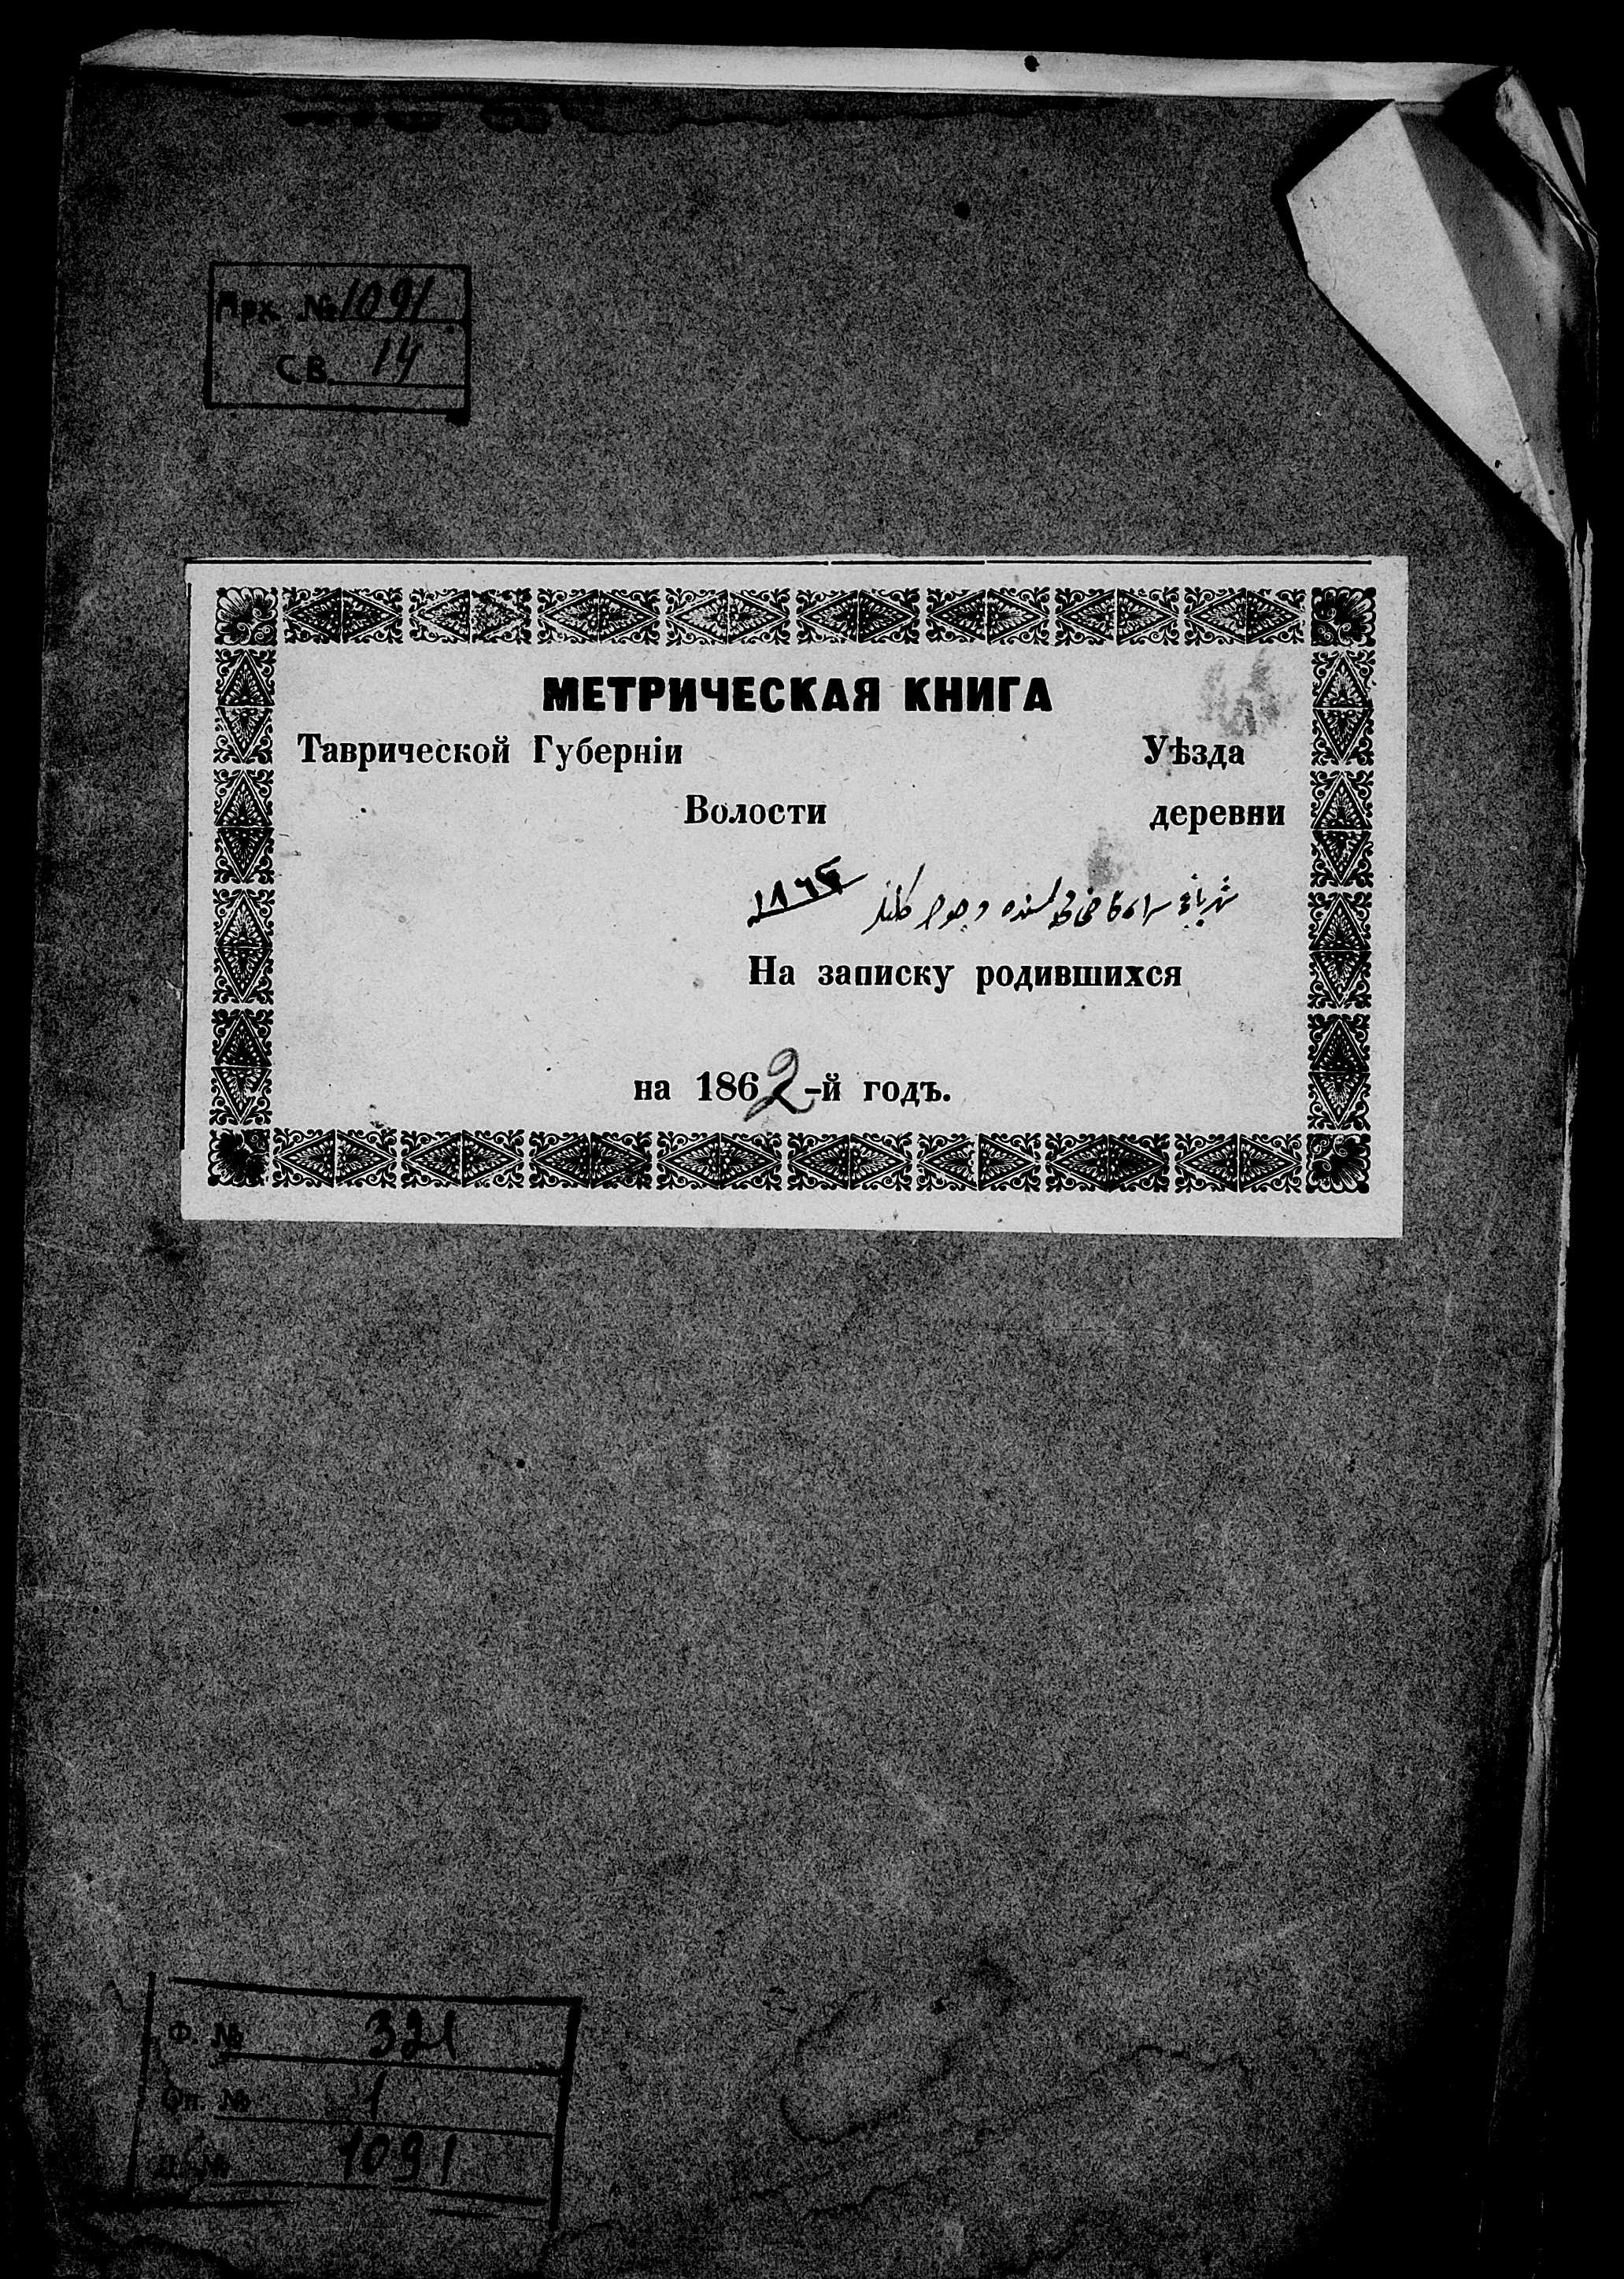 Арх. № 1091
СВ. 14
МЕТРИЧЕСКАЯ КНИГА
Таврической Губерніи Уѣзда
Волости деревни
На записку родившихся
на 1862-й годъ.
Ф. № 321
Оп. № 1
Д. № 1091